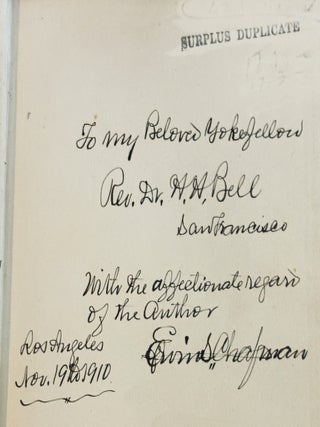 SURPLUS DUPLICATE
To my Beloved Yokefellow
Rev. Dr. H. H. Bell
San Francisco
With the affectionate regard
of the Author
Ervin S. Chapman
Los Angeles
Nov. 19th 1910.